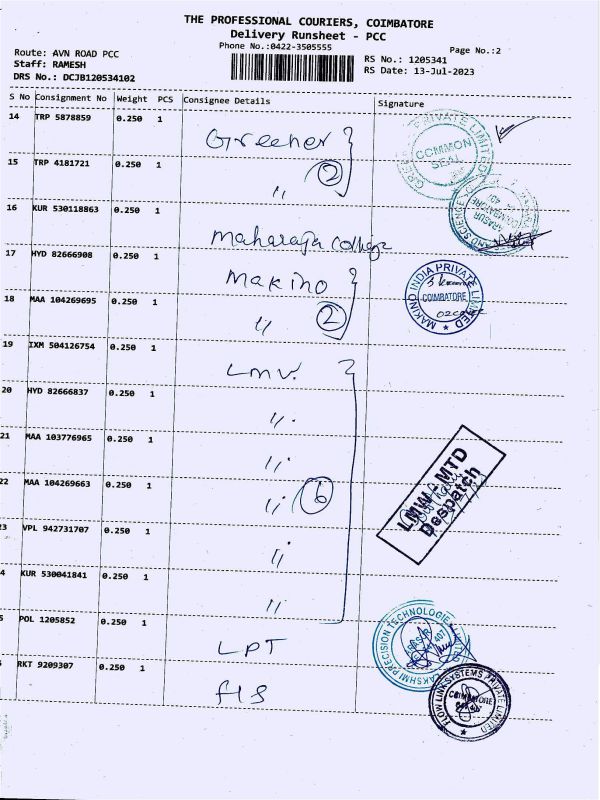 THE PROFESSIONAL COURIERS, COIMBATORE
Delivery Runsheet - PCC
Phone No.:0422-3505555
Page No.:2
Route: AVN ROAD PCC
Staff: RAMESH
DRS No.: DCJB120534102
RS No.: 1205341
RS Date: 13-Jul-2023
S No Consignment No Weight PCS Consignee Details Signature
14 TRP 5878859 0.250 1 Greener
15 TRP 4181721 0.250 1 〃 2
16 KUR 530118863 0.250 1 Maharaja College
17 HYD 82666908 0.250 1 Makino
18 MAA 104269695 0.250 1 〃 2
19 IXM 504126754 0.250 1 LMW.
20 HYD 82666837 0.250 1 〃
21 MAA 103776965 0.250 1 〃
22 MAA 104269663 0.250 1 〃 6
3 VPL 942731707 0.250 1 〃
4 KUR 530041841 0.250 1 〃
5 POL 1205852 0.250 1 LPT
RKT 9209307 0.250 1 fls
PRIVATE LIMITED
COMMON
SEAL
ARASUR
COIMBATORE
MAKINO INDIA PRIVATE LIMITED
COIMBATORE
LMW - MTD
Despatch
LAKSHMI PRECISION TECHNOLOGIES LIMITED
ARASUR
641 407
FLOW LINK SYSTEMS PRIVATE LIMITED
COIMBATORE